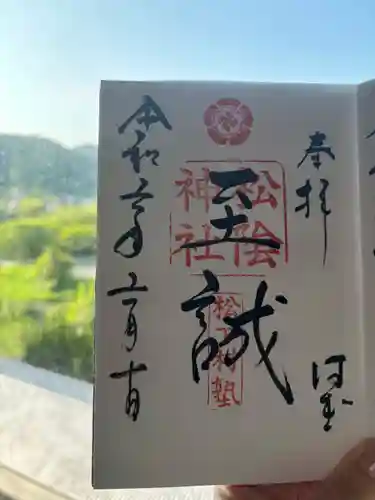 奉拝
至誠
松陰
神社
松下村塾
令和六年
五月十日